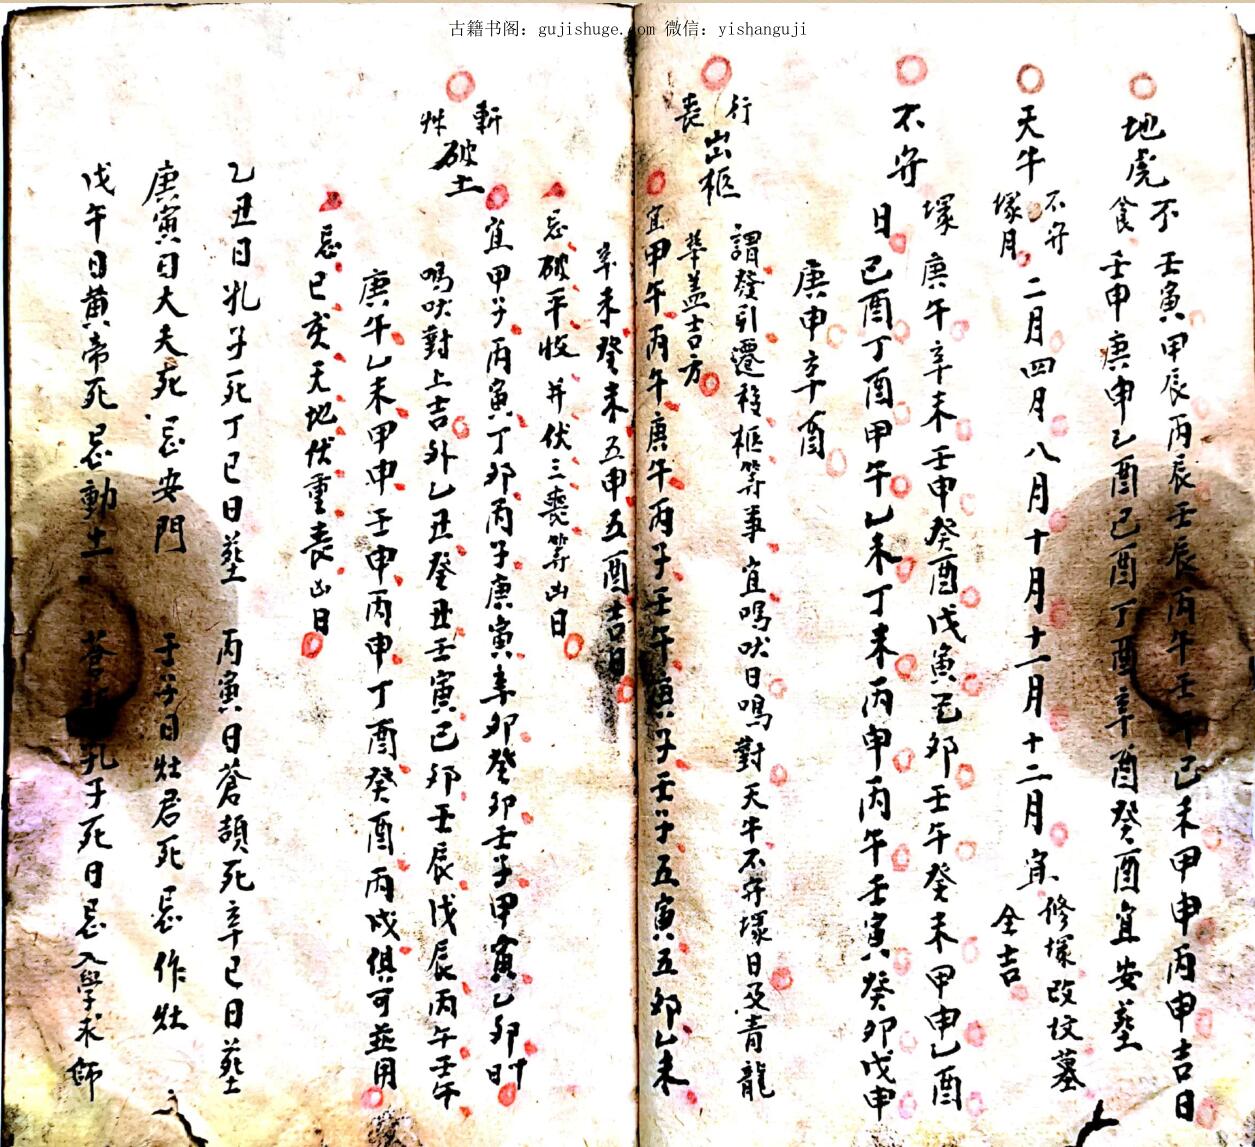 古籍书阁：gujishuge.com 微信：yishanguji
地虎不
食
壬寅甲辰丙辰壬辰丙午壬午己未甲申丙申吉日
壬申庚申乙酉己酉丁酉辛酉癸酉宜安塟
天牛
不守
塚月
二月四月八月十月十一月十二月宜
修塚改坟墓
全吉
不守
塚
日
庚午辛未壬申癸酉戊寅己卯壬午癸未甲申乙酉
己酉丁酉甲午乙未丁未丙申丙午壬寅癸卯戊申
庚申辛酉
行
喪
出柩
謂發引遷移柩等事宜嗚吠日嗚對天牛不守塚日及青龍
華盖吉方
宜甲午丙午庚午丙子壬午庚子壬子五寅五卯乙未
辛未癸未五申五酉吉日
忌破平收并伏三喪等凶日
斬
草
破土
宜甲子丙寅丁卯丙子庚寅辛卯癸卯壬子甲寅乙卯日
嗚吠對上吉外乙丑癸丑壬寅己卯壬辰戊辰丙午壬午
庚午乙未甲申壬申丙申丁酉癸酉丙戌俱可並用
忌巳亥天地伏重丧凶日
乙丑日孔子死丁巳日塟
丙寅日蒼頡死辛巳日塟
庚寅日大夫死忌安門
壬子日灶君死忌作灶
戊午日黄帝死忌動土
蒼
孔子死日忌入學求師